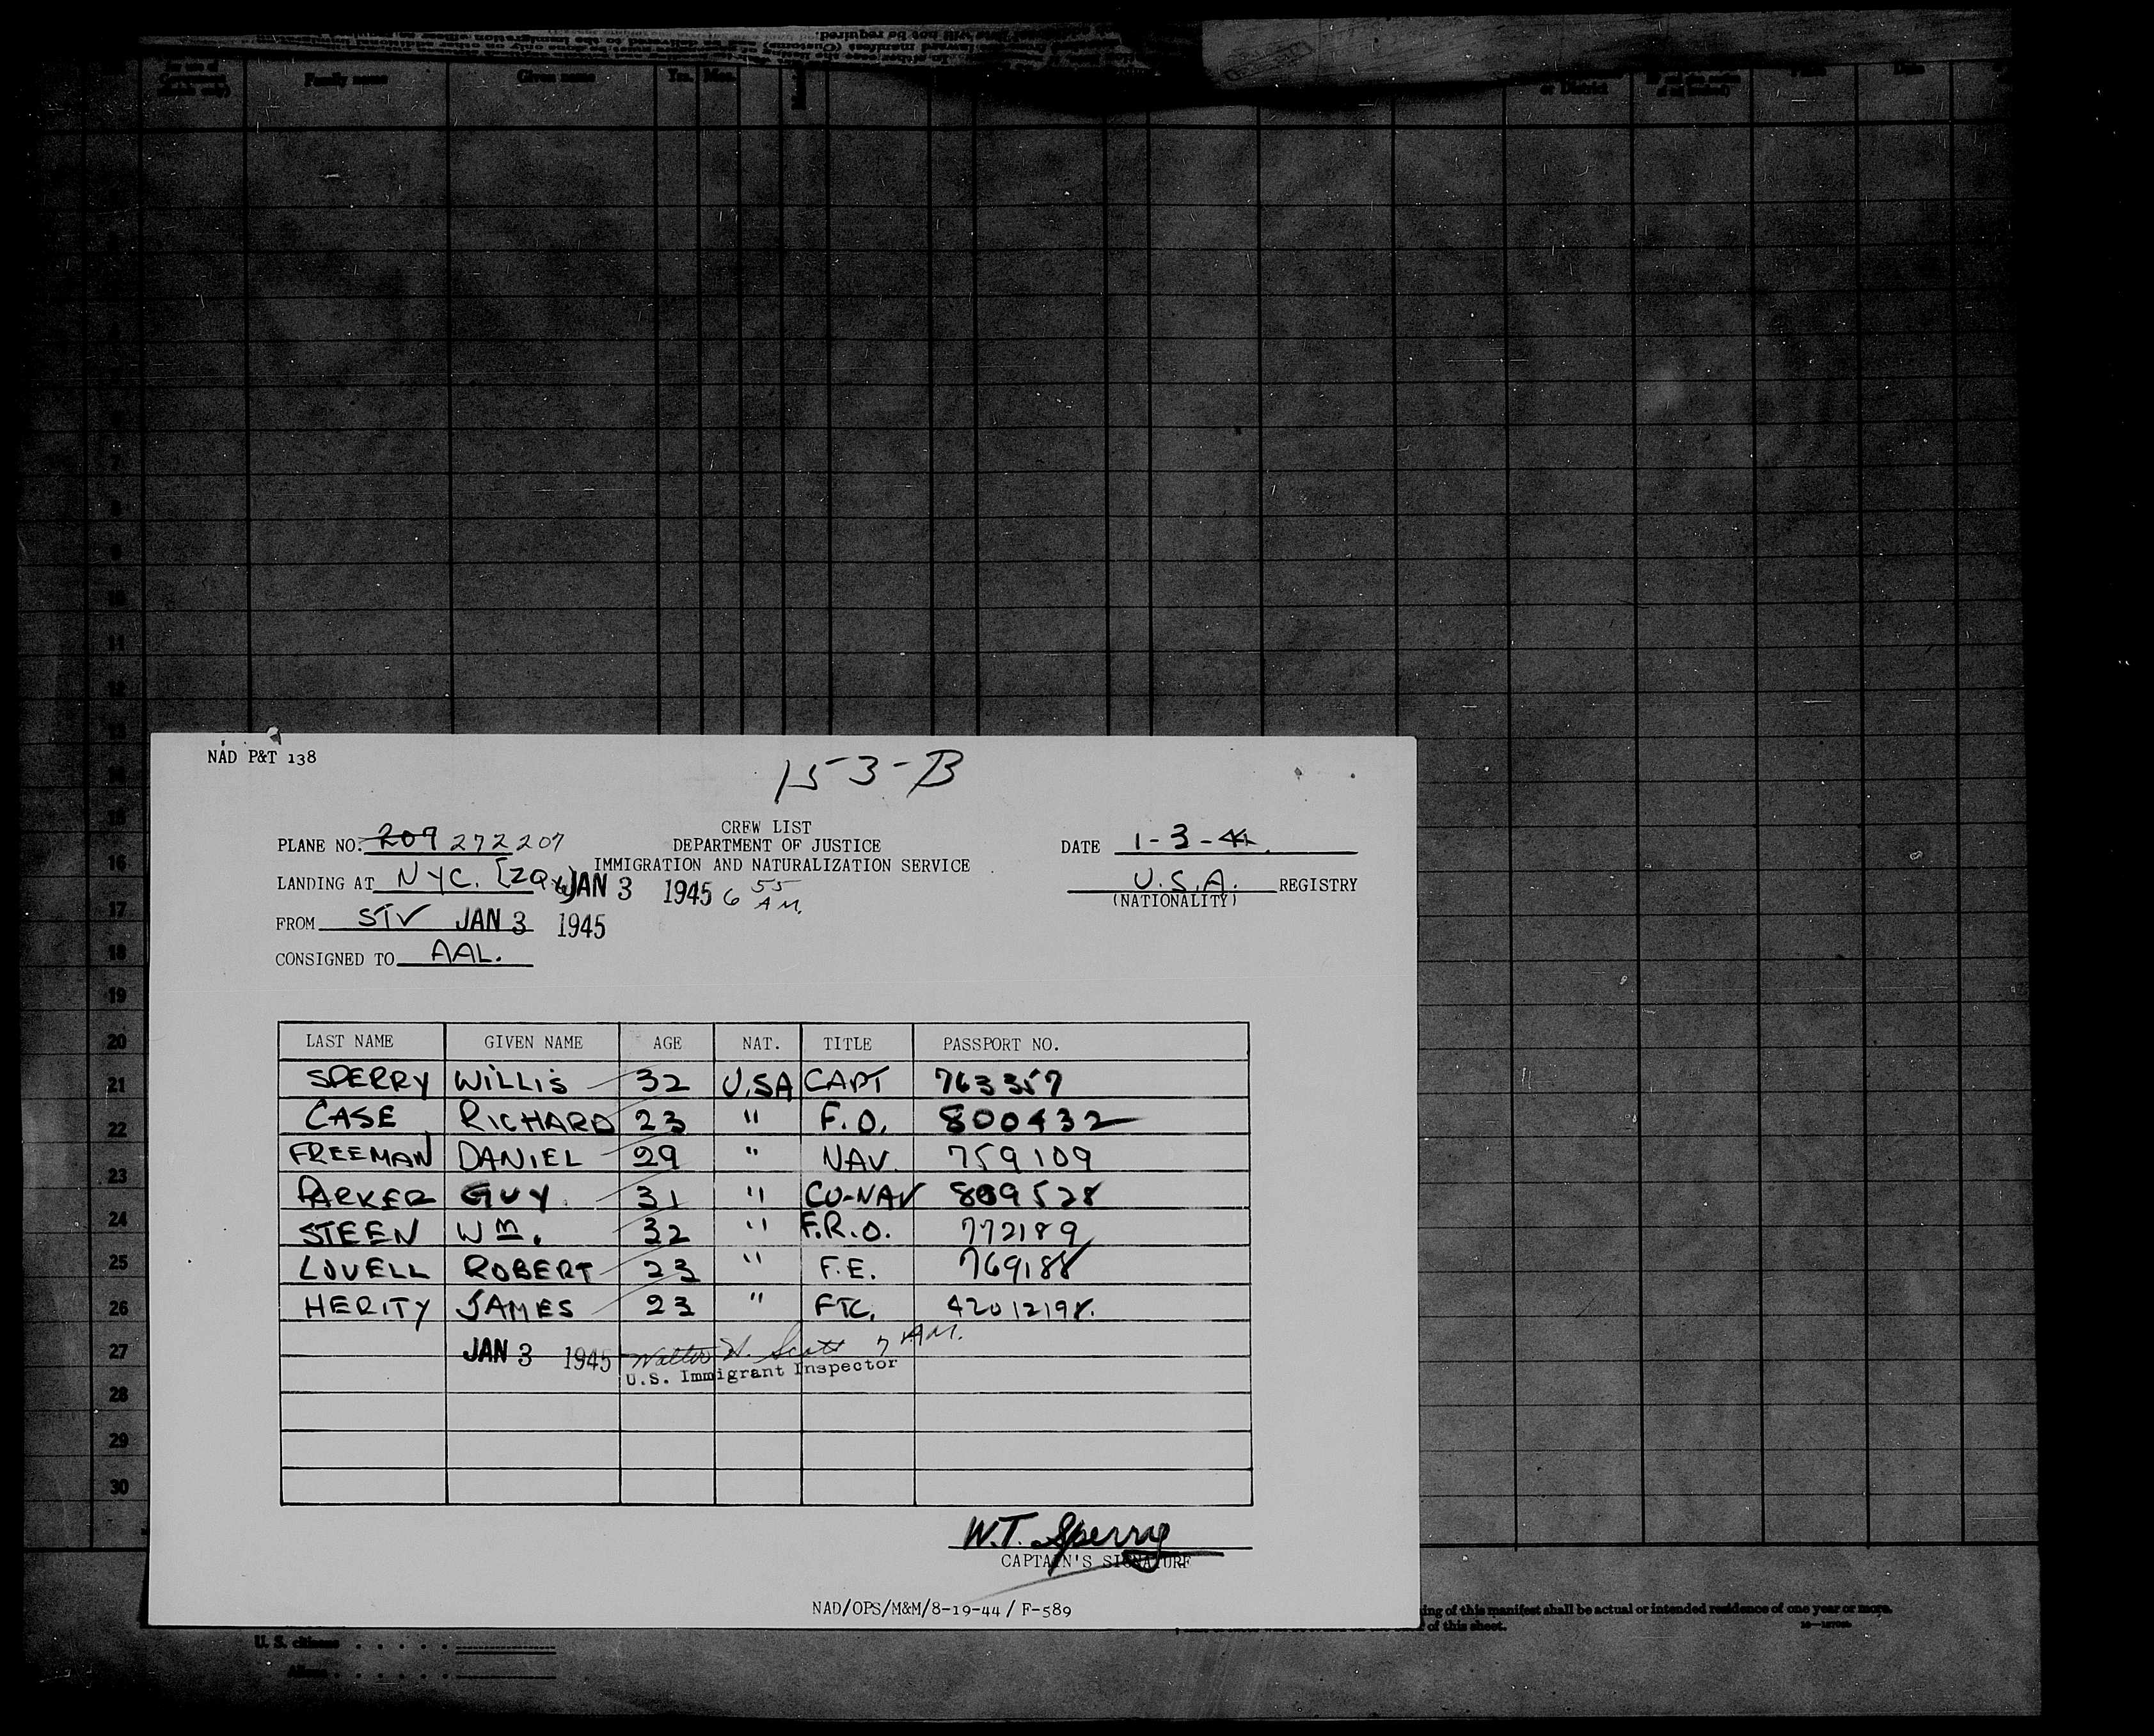 Family name Given name Yrs. Mos.
or District
Date
11
12
13
NAD P&T 138
153-B
CREW LIST
PLANE NO. 209 272207 DEPARTMENT OF JUSTICE DATE 1-3-44.
IMMIGRATION AND NATURALIZATION SERVICE
LANDING AT NYC. JAN 3 1945 6 55 AM. U.S.A. REGISTRY
(NATIONALITY)
FROM STV JAN 3 1945
CONSIGNED TO AAL.
16
17
18
19
20
21
22
23
24
25
26
27
28
29
30
LAST NAME GIVEN NAME AGE NAT. TITLE PASSPORT NO.
SPERRY WILLIS 32 U.SA CAPT 763357
CASE RICHARD 23 " F.O. 800432
FREEMAN DANIEL 29 " NAV. 759109
PARKER GUY 31 " CO-NAV 809528
STEEN Wm. 32 " F.R.O. 772189
LOVELL ROBERT 23 " F.E. 769188
HERITY JAMES 23 " FTC. 42012198.
JAN 3 1945 Walter H. Scott 7 AM.
U.S. Immigrant Inspector
W.T. Sperry
CAPTAIN'S SIGNATURE
NAD/OPS/M&M/8-19-44 / F-589
ing of this manifest shall be actual or intended residence of one year or more.
of this sheet.
U. S. citizens . . . . .
Aliens . . . . . .